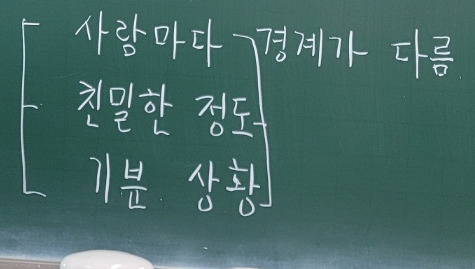 사람마다 경계가 다름
친밀한 정도
기분 상황